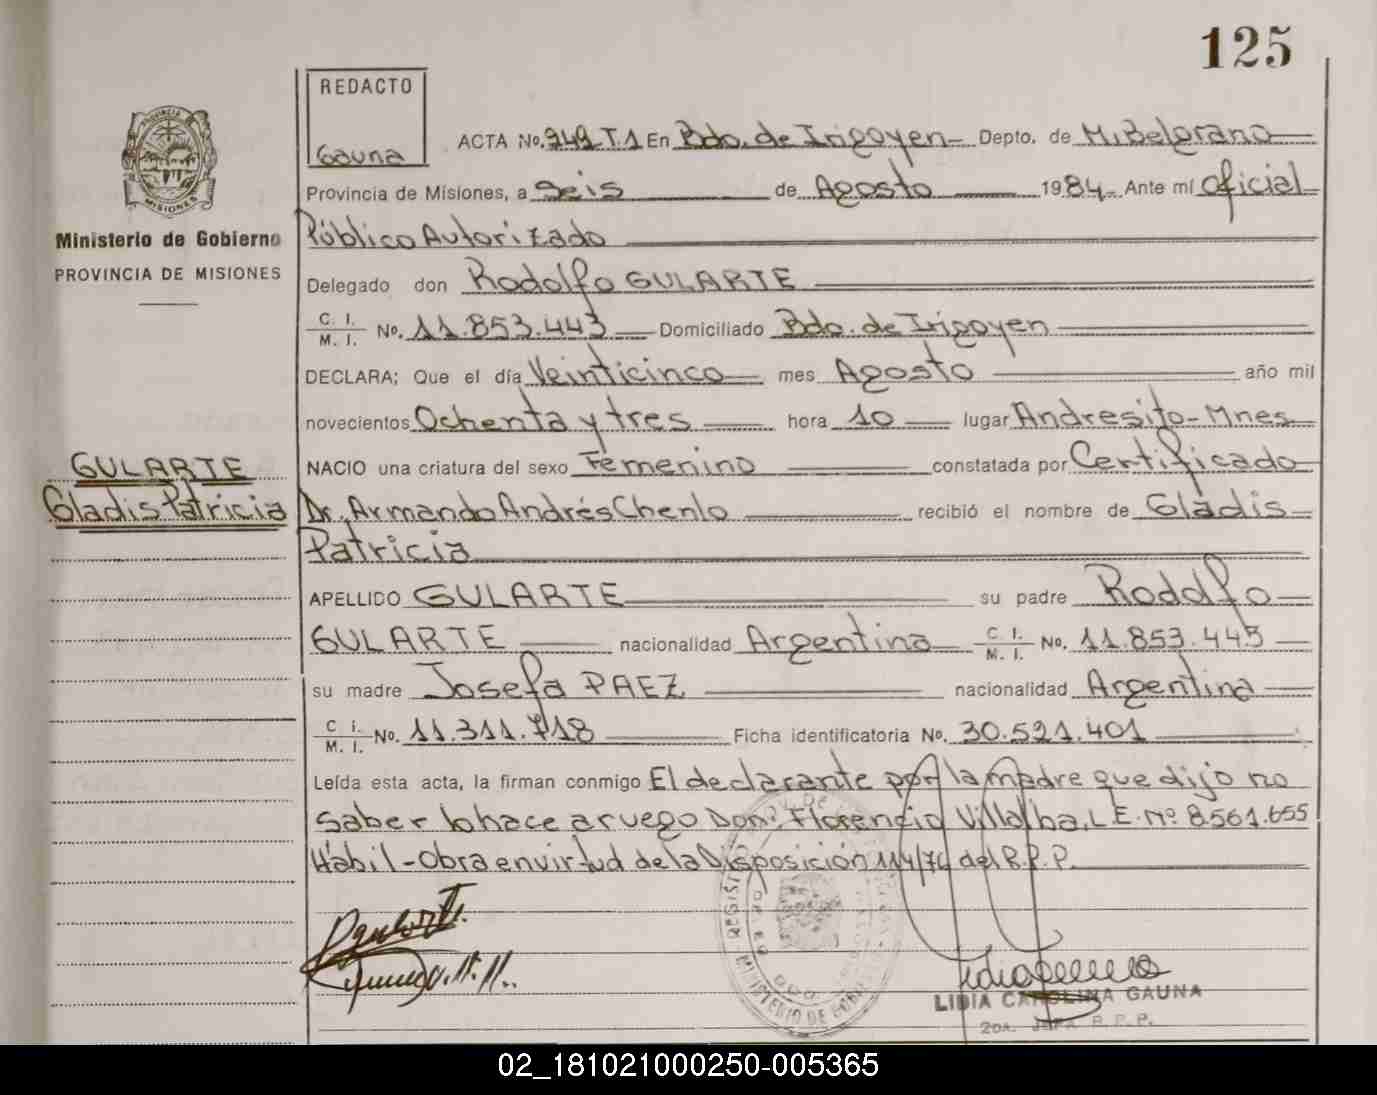 125
REDACTO
Gauna
ACTA No. 242 T.1 En Bdo. de Irigoyen Depto. de M. Belgrano
Provincia de Misiones, a Seis de Agosto 1984 Ante mí Oficial
Público Autorizado
Ministerio de Gobierno
PROVINCIA DE MISIONES
Delegado don Rodolfo GULARTE
C. I. M. I. No. 11.853.443 Domiciliado Bdo. de Irigoyen
DECLARA; Que el día Veinticinco mes Agosto año mil
novecientos Ochenta y tres hora 10 lugar Andresito-Mnes
GULARTE
Gladis Patricia
NACIO una criatura del sexo Femenino constatada por Certificado
Dr. Armando Andrés Chenlo recibió el nombre de Gladis
Patricia
APELLIDO GULARTE su padre Rodolfo
GULARTE nacionalidad Argentina C. I. M. I. No. 11.853.443
su madre Josefa PAEZ nacionalidad Argentina
C. I. M. I. No. 11.311.718 Ficha identificatoria No. 30.521.401
Leída esta acta, la firman conmigo El declarante por la madre que dijo no
saber lo hace a ruego Don: Florencio Villalba, L.E. Nº 8561.655
Hábil-Obra en virtud de la Disposición 114/74 del R.P.P.
LIDIA CAROLINA GAUNA
2DA. JEFA R.P.P.
MINISTERIO DE GOBIERNO
02_181021000250-005365